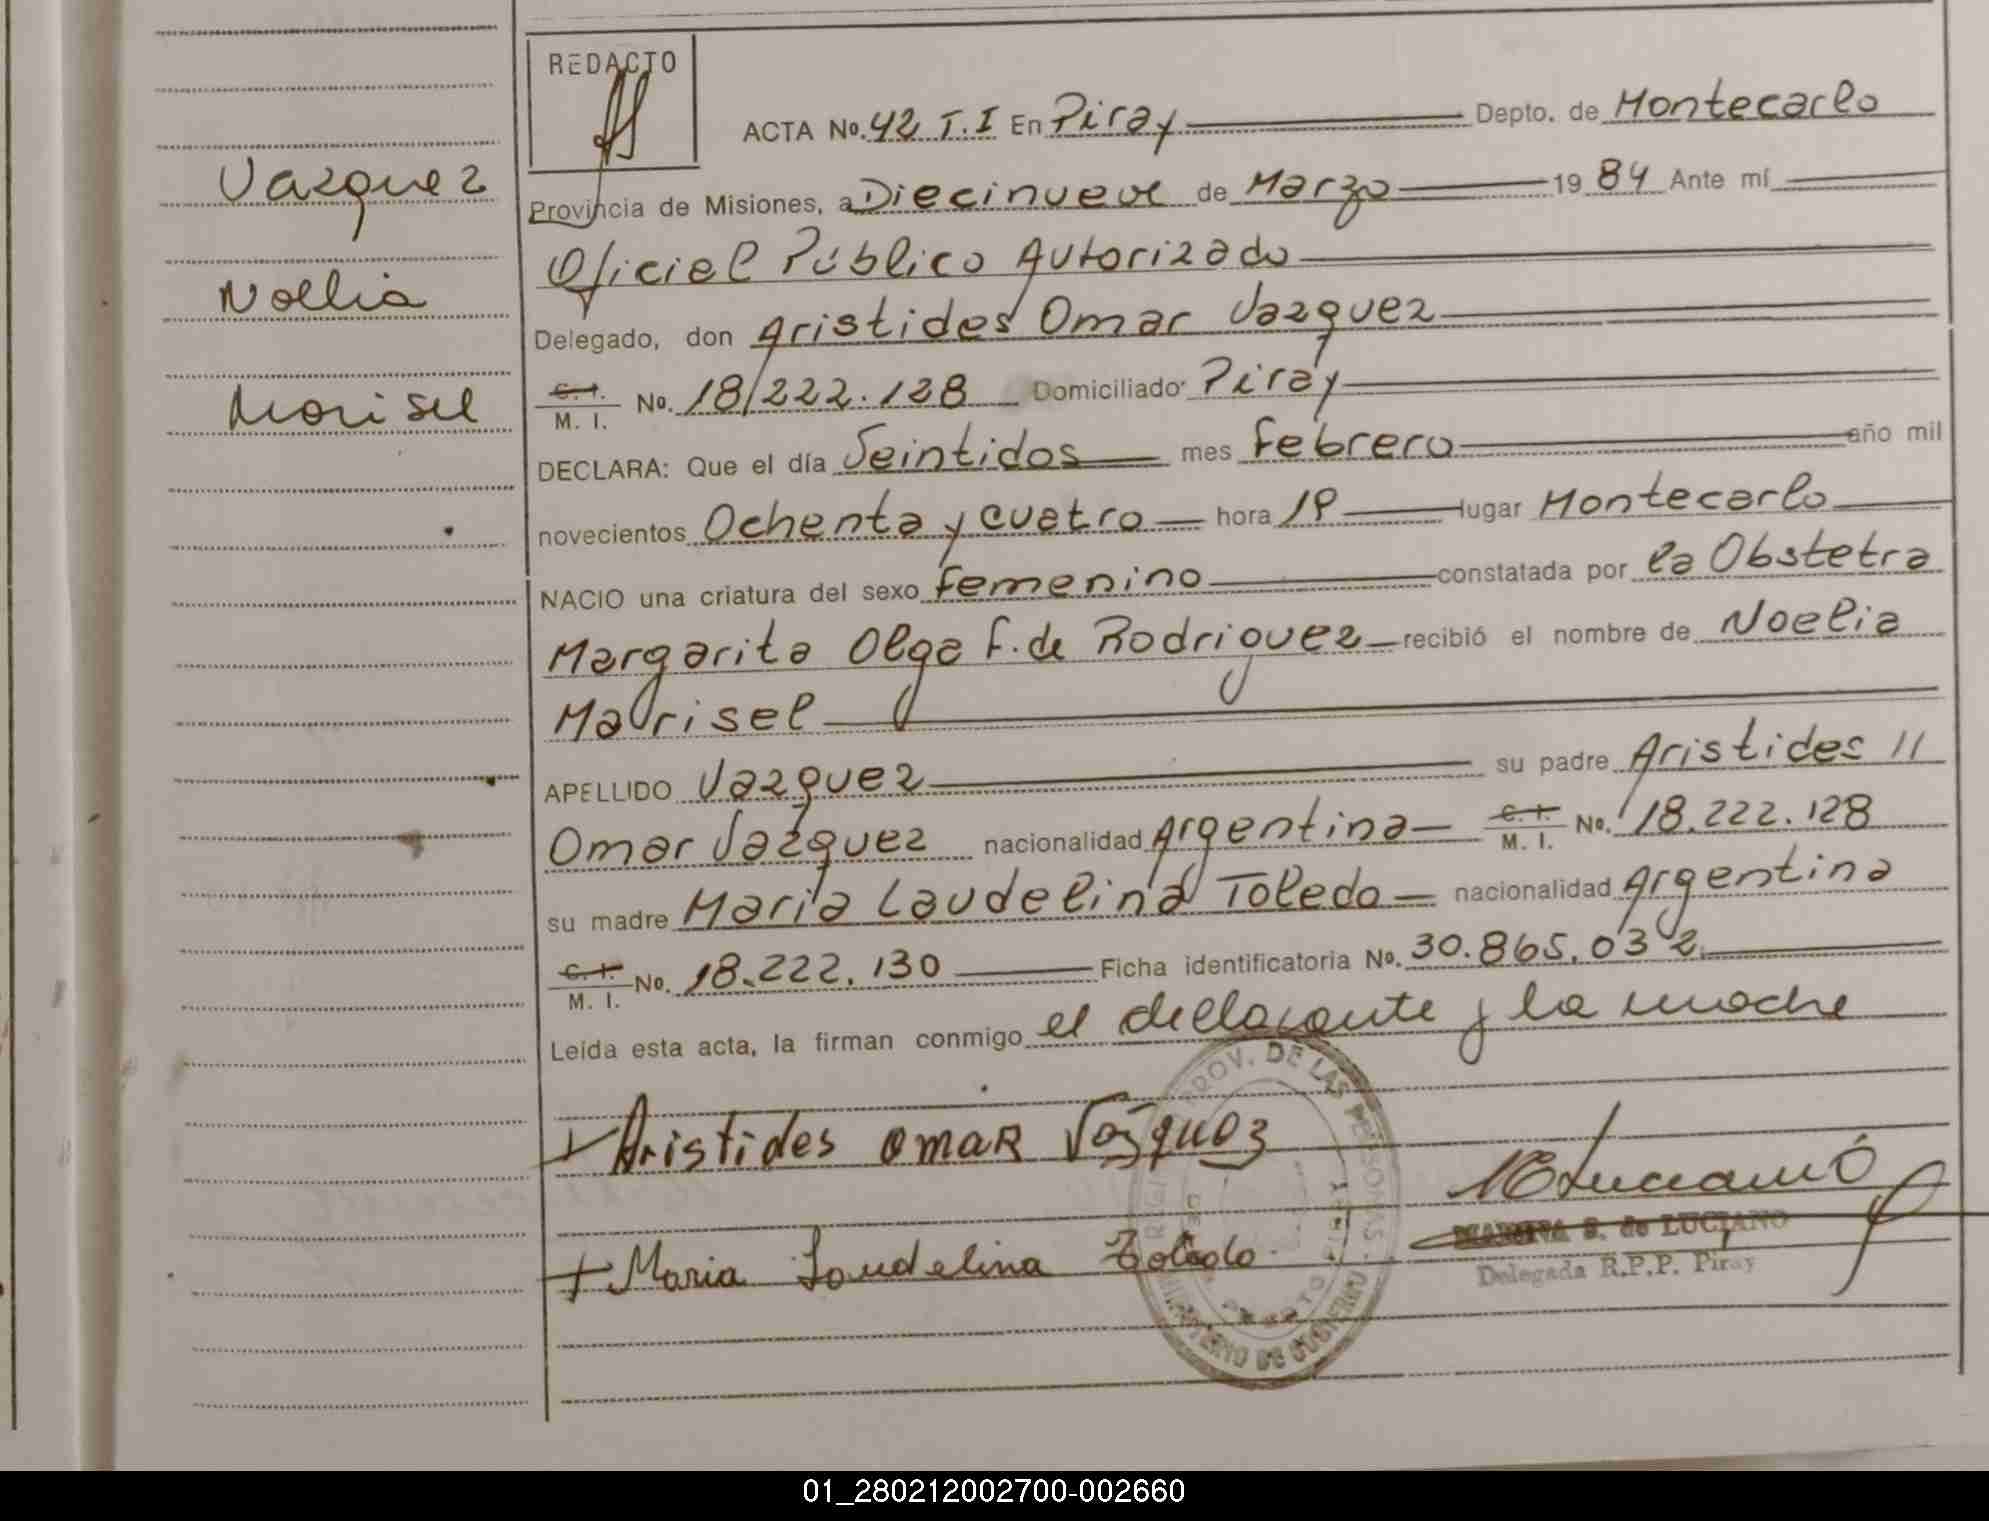 REDACTO
ACTA No. 42 T.I En Piray Depto. de Montecarlo
Provincia de Misiones, a Diecinueve de Marzo 19 84 Ante mí
Oficiel Público Autorizado
Delegado, don Aristides Omar Vazquez
C. I. M. I. No. 18/222.128 Domiciliado Piray
DECLARA: Que el día Veintidos mes Febrero año mil
novecientos Ochenta y cuatro hora 19 lugar Montecarlo
NACIO una criatura del sexo Femenino constatada por la Obstetra
Margarita Olga F. de Rodriguez recibió el nombre de Noelia
Marisel
APELLIDO Vazquez su padre Aristides //
Omar Vazquez nacionalidad Argentina C. I. M. I. No. 18.222.128
su madre Maria Laudelina Toledo nacionalidad Argentina
C. I. M. I. No. 18.222.130 Ficha identificatoria No. 30.865.032
Leída esta acta, la firman conmigo el declarante y la madre
Aristides Omar Vázquez
Maria Laudelina Toledo
S. de LUCIANO
Delegada R.P.P. Piray
PROV. DE LAS PERSONAS
MINISTERIO DE GOBIERNO
Vazquez
Noelia
Marisel
01_280212002700-002660